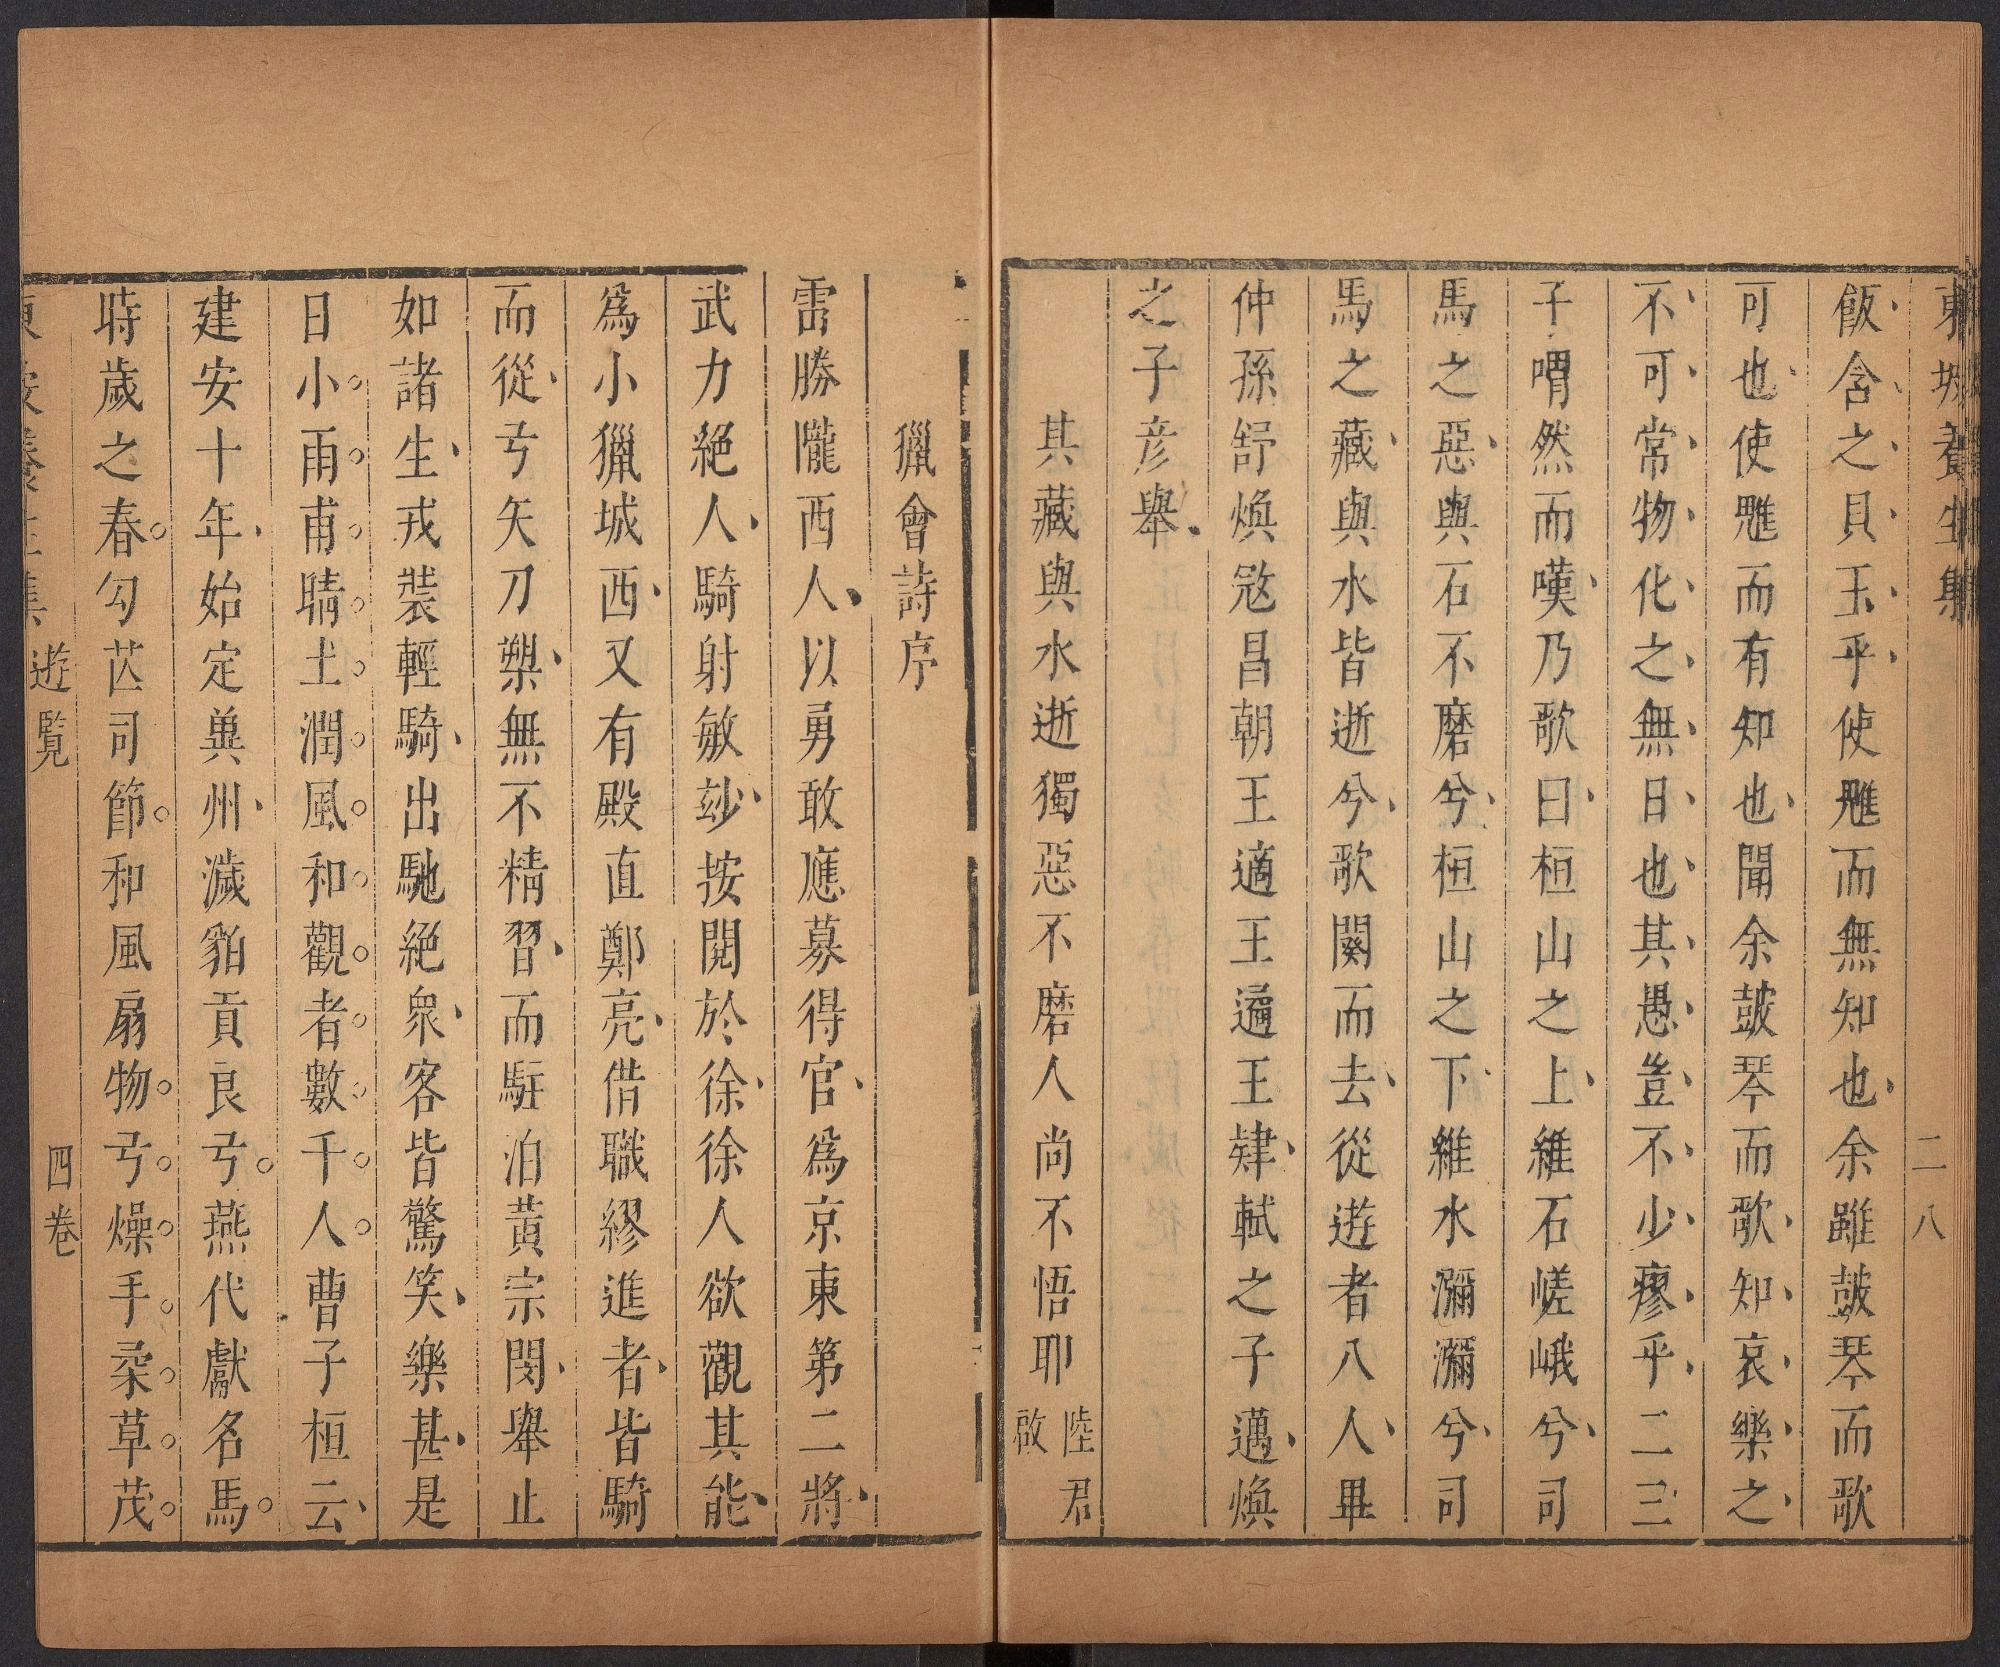 東坡養生集 二八
飯含之貝玉乎使魋而無知也余雖鼓琴而歌
可也使魋而有知也聞余鼓琴而歌知哀樂之
不可常物化之無日也其愚豈不少瘳乎二三
子喟然而嘆乃歌曰桓山之上維石嵯峨兮司
馬之惡與石不磨兮桓山之下維水瀰瀰兮司
馬之藏與水皆逝兮歌闋而去從遊者八人畢
仲孫舒煥冦昌朝王適王遹王肄軾之子邁煥
之子彥舉
其藏與水逝獨惡不磨人尚不悟耶 陸君啟
獵會詩序
雷勝隴西人以勇敢應募得官為京東第二將
武力絕人騎射敏玅按閱於徐徐人欲觀其能
為小獵城西又有殿直鄭亮借職繆進者皆騎
而從弓矢刀槊無不精習而駐泊黃宗閔舉止
如諸生戎裝輕騎出馳絕衆客皆驚笑樂甚是
日小雨甫晴土潤風和觀者數千人曹子桓云
建安十年始定兾州濊貊貢良弓燕代獻名馬
時歲之春勾芒司節和風扇物弓燥手柔草茂
東坡養生集 遊覧 四卷